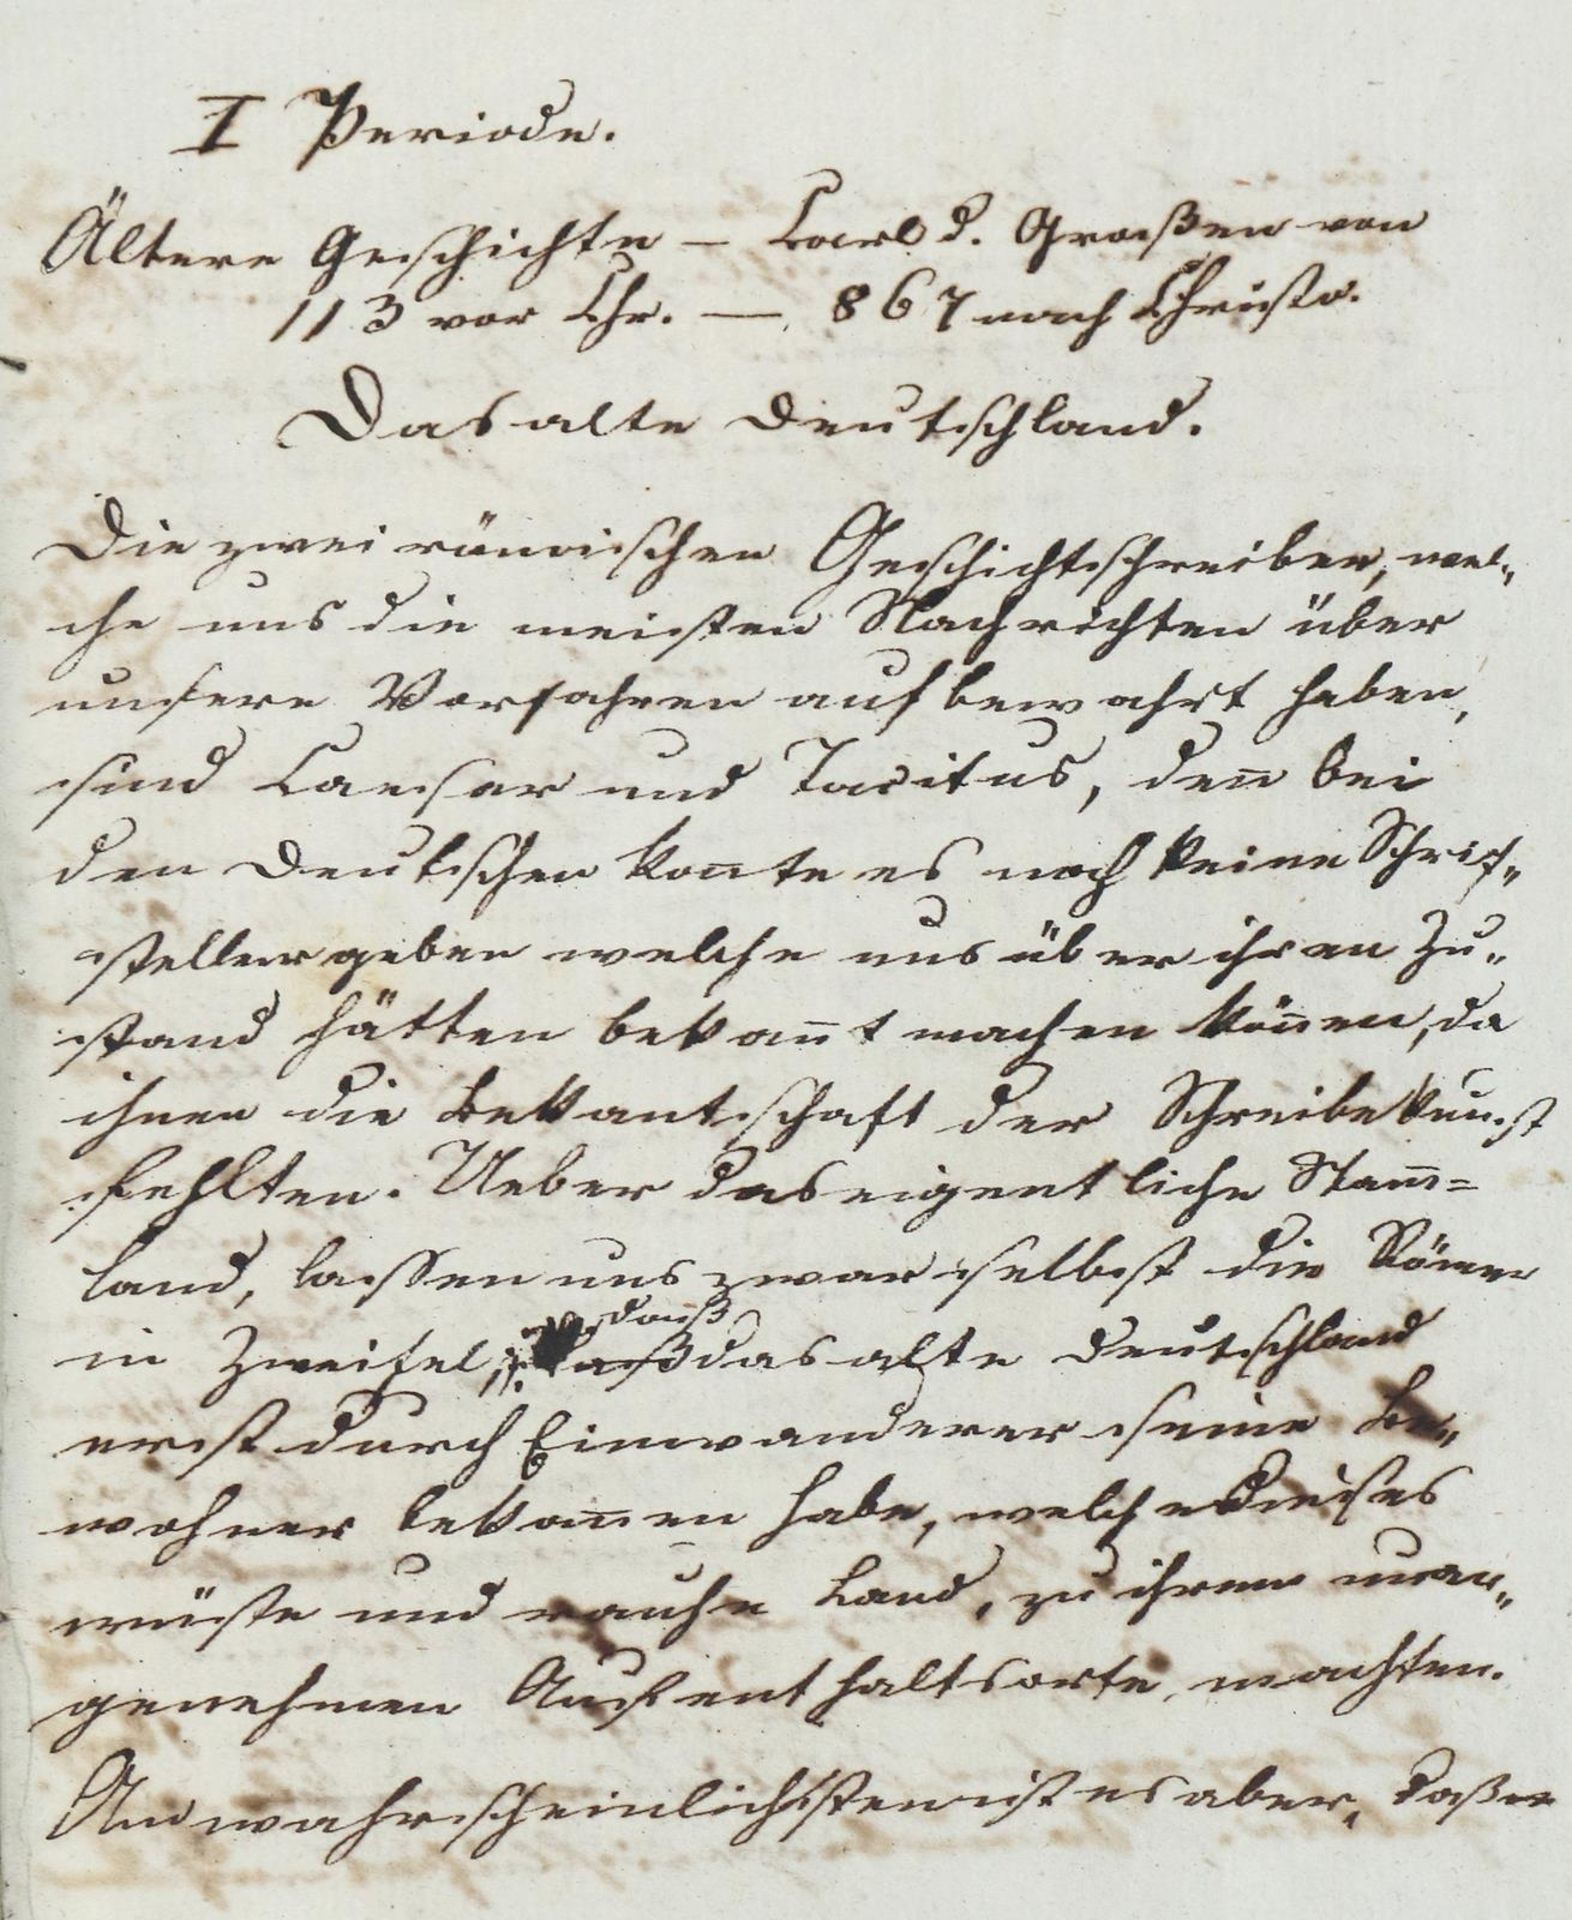 I Periode.
Ältere Geschichte – Carl d. Großen von
113 vor Chr. — 867 nach Christo.
Das alte Deutschland.
Die zwei römischen Geschichtschreiber, wel„
che uns die meisten Nachrichten über
unsere Vorfahren aufbewahrt haben,
sind Caesar und Tacitus, den̅ bei
den Deutschen kon̅te es noch keine Schrif„
steller geben welche uns über ihren Zu„
stand hätten bekan̅t machen kön̅en, da
ihnen die Bekantschaft der Schreibekunst
fehlten. Ueber das eigentliche Stam̅=
land, lassen uns zwar selbst die Römer
in Zweifel, daß das alte Deutschland
erst durch Einwanderer seine Be„
wohner bekom̅en habe, welche dieses
wüste und rauhe Land, zu ihrem unan„
genehmen Aufenthaltsorte, machten.
Am wahrscheinlichsten ist es aber, daß